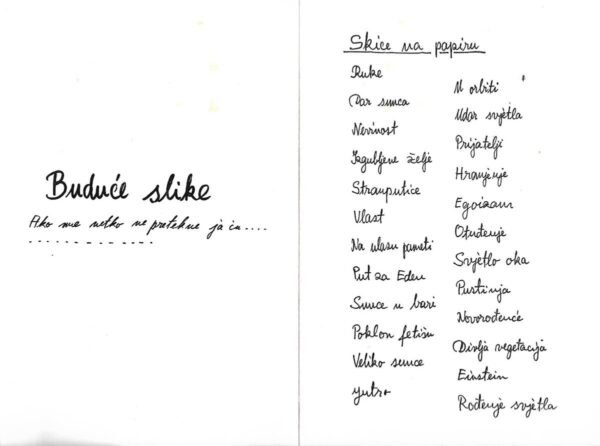 Buduće slike
Ako me netko ne pretekne ja ću....
Skice na papiru
Ruke
Dar sunca
Nevinost
Izgubljene želje
Stranputice
Vlast
Na ulasu pameti
Put za Eden
Sunce u bari
Poklon fetišu
Veliko sunce
Jutro
U orbiti
Udar svjetla
Prijatelji
Hranjenje
Egoizam
Otuđenje
Svjetlo oka
Pustinja
Novorođenče
Divlja vegetacija
Einstein
Rođenje svjetla